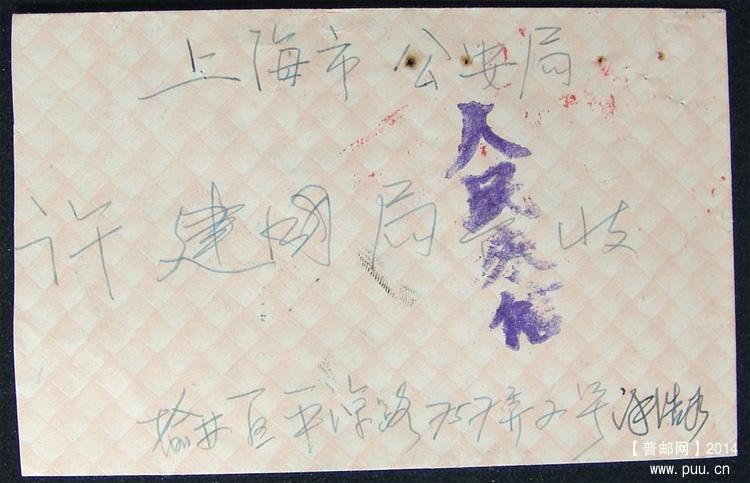 上海市 公安局
许建國局长收
人民来信
榆林区平凉路
号
【普邮网】2014
www.puu.cn